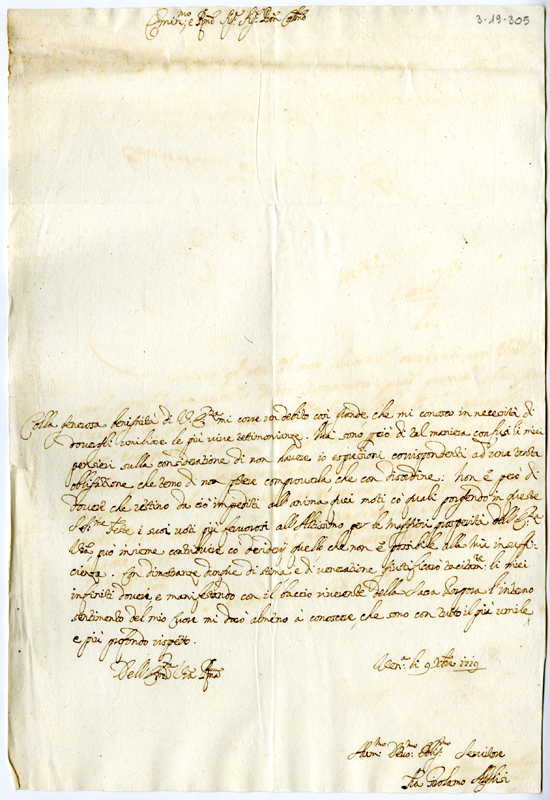 Emin:mo e Rmo Sig: Sig: Pron Colmo
3-19-305
Colla generosa benignità di V. Emza mi corre un debito così grande che mi conosco in necessità di
le più vive testimonianze. Mà sono però di tal maniera confusi li miei
pensieri sulla considerazione di non havere io espressioni corrispondenti ad una tanta
obligazione che temo di non potere comprovarla che con disordine: Non è però di
dovere che restino da ciò impediti all'anima quei moti co quali porgendo in queste
Sstme feste i suoi voti più favorosi all'Altissimo per le maggiori prosperità dell'Emza
Vra può insieme co desiderj quello che non è possibile alla mia insuffi-
cienza. Con dimostranze di stima e di venerazione li miei
infiniti doveri e manifestando con il baccio riverente della Sacra Porpora l'interno
sentimento del mio cuore mi darò almeno à conoscere, che sono con tutto il più umile
e più profondo rispetto.
Dell'Emza Vra Rma
li 9 Xbre 1719
Umo Devmo Oblmo Servitore
Fra